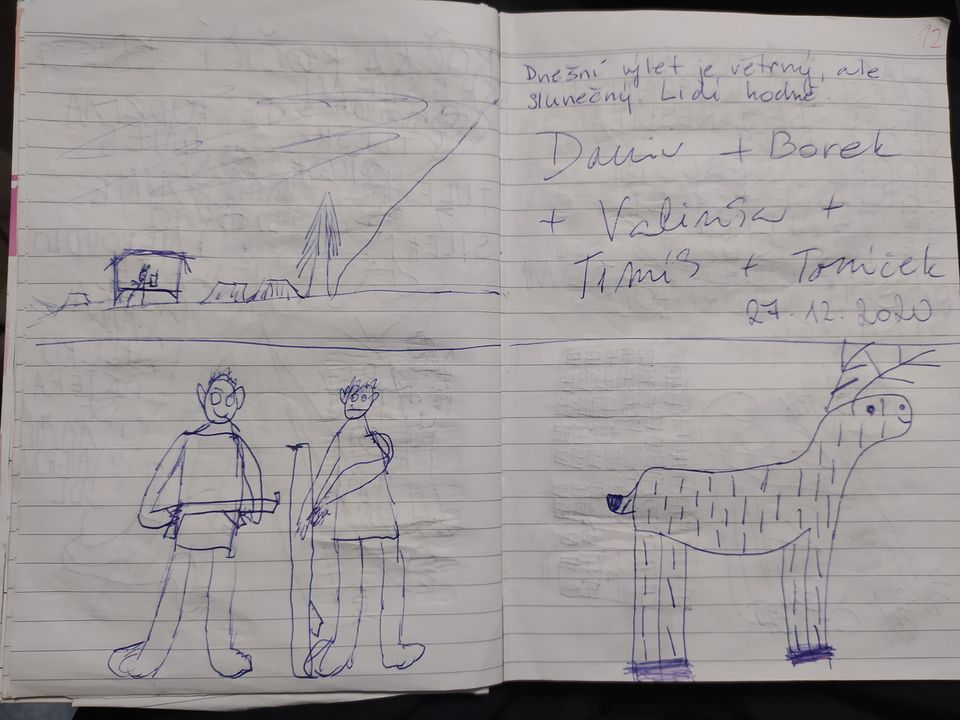 12
Dnešní výlet je větrný, ale
slunečný. Lidí hodně.
+ Borek
+ Valinka +
Timiš + Tomíček
27.12.2020